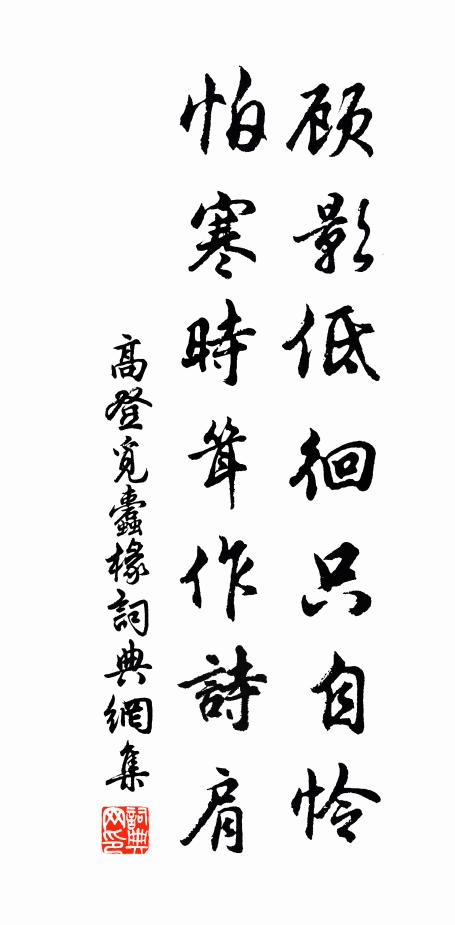 顾影低徊只自怜
怕寒時耸作詩肩
高登覓蠹椽詞典網集
詞典網印